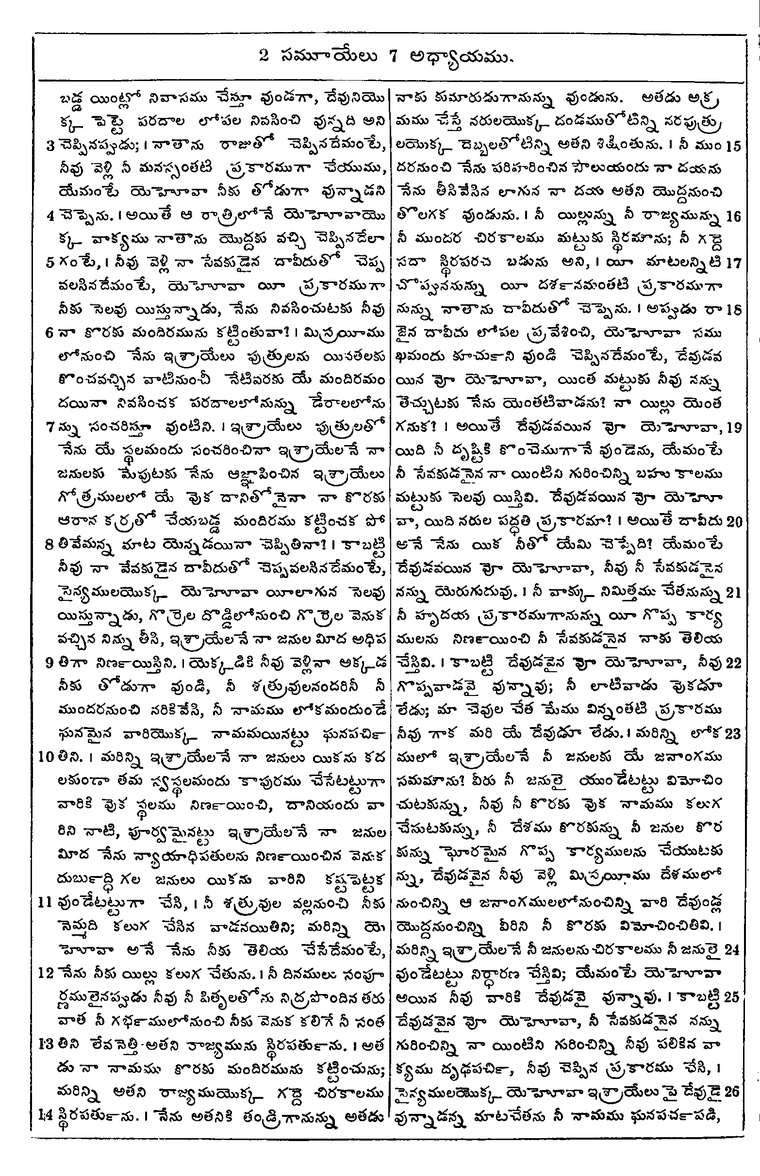 2 సమూయేలు 7 అధ్యాయము.
బడ్డ యింట్లో నివాసము చేస్తూ వుండగా, దేవునియొ
క్క పెట్టె పరదాల లోపల నివసించి వున్నది అని
3 చెప్పినప్పుడు; । నాతాను రాజుతో చెప్పినదేమంటే,
నీవు వెళ్లి నీ మనస్సంతటి ప్రకారముగా చేయుము,
యేమంటే యెహోవా నీకు తోడుగా వున్నాడని
4 చెప్పెను. । అయితే ఆ రాత్రిలోనే యెహోవాయొ
క్క వాక్యము నాతాను యొద్దకు వచ్చి చెప్పినదేలా
5 గంటే, । నీవు వెళ్లి నా సేవకుడైన దావీదుతో చెప్ప
వలసినదేమంటే, యెహోవా యీ ప్రకారముగా
నీకు సెలవు యిస్తున్నాడు, నేను నివసించుటకు నీవు
6 నా కొరకు మందిరమును కట్టింతువా? । మిస్రయీము
లోనుంచి నేను ఇశ్రాయేలు పుత్రులను యీవతలకు
తీసుకొనివచ్చిన వాటినుంచీ నేటివరకు యే మందిరమం
దయినా నివసించక పరదాలలోనున్ను డేరాలలోను
7 న్ను సంచరిస్తూ వుంటిని. । ఇశ్రాయేలు పుత్రులతో
నేను యే స్థలమందు సంచరించినా ఇశ్రాయేలనే నా
జనులకు మేపుటకు నేను ఆజ్ఞాపించిన ఇశ్రాయేలు
గోత్రములలో యే వుక దానితోనైనా నా కొరకు
ఆరాస కర్రతో చేయబడ్డ మందిరము కట్టించక పో
8 తివేమన్న మాట యెన్నడయినా చెప్పితినా? । కాబట్టి
నీవు నా వేవకుడైన దావీదుతో చెప్పవలసినదేమంటే,
సైన్యములయొక్క యెహోవా యీలాగున సెలవు
యిస్తున్నాడు, గొర్రెల దొడ్డిలోనుంచి గొర్రెల వెనుక
వచ్చిన నిన్ను తీసి, ఇశ్రాయేలనే నా జనుల మీద అధిప
9 తిగా నిర్ణయిస్తిని. । యెక్కడికి నీవు వెళ్లినా అక్కడ
నీకు తోడుగా వుండి, నీ శత్రువులనందరినీ నీ
ముందరనుంచి నరికివేసి, నీ నామము లోకమందుండే
ఘనమైన వారియొక్క నామమయినట్టు ఘనపర్చి
10 తిని. । మరిన్ని ఇశ్రాయేలనే నా జనులు యికను కద
లకుండా తమ స్వస్థలమందు కాపురము చేసేటట్టుగా
వారికి వుక స్థలము నిర్ణయించి, దానియందు వా
రిని నాటి, పూర్వమైనట్టు ఇశ్రాయేలనే నా జనుల
మీద నేను న్యాయాధిపతులను నిర్ణయించిన వెనుక
దుర్బుద్ధి గల జనులు యికను వారిని కష్టపెట్టక
11 వుండేటట్టుగా చేసి, । నీ శత్రువుల వల్లనుంచి నీకు
నెమ్మది కలుగ చేసిన వాడనయితిని; మరిన్ని యె
హోవా అనే నేను నీకు తెలియ చేసేదేమంటే,
12 నేను నీకు యిల్లు కలుగ చేతును. । నీ దినములు సంపూ
ర్ణములైనప్పుడు నీవు నీ పితృలతోను నిద్రపొందిన తరు
వాత నీ గర్భములోనుంచి నీకు వెనుక కలిగే నీ సంత
13 తిని లేవనెత్తి అతని రాజ్యమును స్థిరపర్తును. । అత
డు నా నామము కొరకు మందిరమును కట్టించును;
మరిన్ని అతని రాజ్యముయొక్క గద్దె చిరకాలము
14 స్థిరపర్తును. । నేను అతనికి తండ్రిగానున్ను అతడు
నాకు కుమారుడుగానున్ను వుండును. అతడు అక్ర
మము చేస్తే నరులయొక్క దండముతోటిన్ని నరపుత్రు
లయొక్క దెబ్బలతోటిన్ని అతని శిక్షింతును. । నీ ముం 15
దరనుంచి నేను పరిహరించిన సౌలుయందు నా దయను
నేను తీసివేసిన లాగున నా దయ అతని యొద్దనుంచి
తొలగక వుండును. । నీ యిల్లున్ను నీ రాజ్యమున్ను 16
నీ ముందర చిరకాలము మట్టుకు స్థిరమాను; నీ గద్దె
సదా స్థిరపరచ బడును అని, । యీ మాటలన్నిటి 17
చొప్పుననున్ను యీ దర్శనమంతటి ప్రకారముగా
నున్ను నాతాను దావీదుతో చెప్పెను. । అప్పుడు రా 18
జైన దావీదు లోపల ప్రవేశించి, యెహోవా సము
ఖమందు కూర్చుని వుండి చెప్పినదేమంటే, దేవుడవ
యిన వో యెహోవా, యింత మట్టుకు నీవు నన్ను
తెచ్చుటకు నేను యెంతటివాడను? నా యిల్లు యెంత
గనుక? । అయితే దేవుడవయిన వో యెహోవా, 19
యిది నీ దృష్టికి కొంచెముగానే వుండెను, యేమంటే
నీ సేవకుడనైన నా యింటిని గురించిన్ని బహు కాలము
మట్టుకు సెలవు యిస్తివి. దేవుడవయిన వో యెహో
వా, యిది నరుల పద్ధతి ప్రకారమా? । అయితే దావీదు 20
అనే నేను యిక నీతో యేమి చెప్పేది? యేమంటే
దేవుడవయిన వో యెహోవా, నీవు నీ సేవకుడనైన
నన్ను యెరుగుదువు. । నీ వాక్కు నిమిత్తము చేతనున్ను 21
నీ హృదయ ప్రకారముగానున్ను యీ గొప్ప కార్య
ములను నిర్ణయించి నీ సేవకుడనైన నాకు తెలియ
చేస్తివి. । కాబట్టి దేవుడవైన వో యెహోవా, నీవు 22
గొప్పవాడవై వున్నావు; నీ లాటివాడు వుకడూ
లేడు; మా చెవుల చేత మేము విన్నంతటి ప్రకారము
నీవు గాక మరి యే దేవుడూ లేడు. । మరిన్ని లోక 23
ములో ఇశ్రాయేలనే నీ జనులకు యే జనాంగము
సమమాను? వీరు నీ జనులై యుండేటట్టు విమోచిం
చుటకున్ను, నీవు నీ కొరకు వుక నామము కలుగ
చేసుటకున్ను, నీ దేశము కొరకున్ను నీ జనుల కొర
కున్ను ఘోరమైన గొప్ప కార్యములను చేయుటకు
న్ను, దేవుడవైన నీవు వెళ్లి మిస్రయీము దేశములో
నుంచిన్ని ఆ జనాంగములలోనుంచిన్ని వారి దేవుండ్ల
యొద్దనుంచిన్ని వీరిని నీ కొరకు విమోచించితివి. ।
మరిన్ని ఇశ్రాయేలనే నీ జనులను చిరకాలము నీ జనులై 24
వుండేటట్టు నిర్ధారణ చేస్తివి; యేమంటే యెహోవా
అయిన నీవు వారికి దేవుడవై వున్నావు. । కాబట్టి 25
దేవుడవైన వో యెహోవా, నీ సేవకుడనైన నన్ను
గురించిన్ని నా యింటిని గురించిన్ని నీవు పలికిన వా
క్యము దృఢపర్చి, నీవు చెప్పిన ప్రకారము చేసి, ।
సైన్యములయొక్క యెహోవా ఇశ్రాయేలు పై దేవుడై 26
వున్నాడన్న మాటచేతను నీ నామము ఘనపర్చపడి,